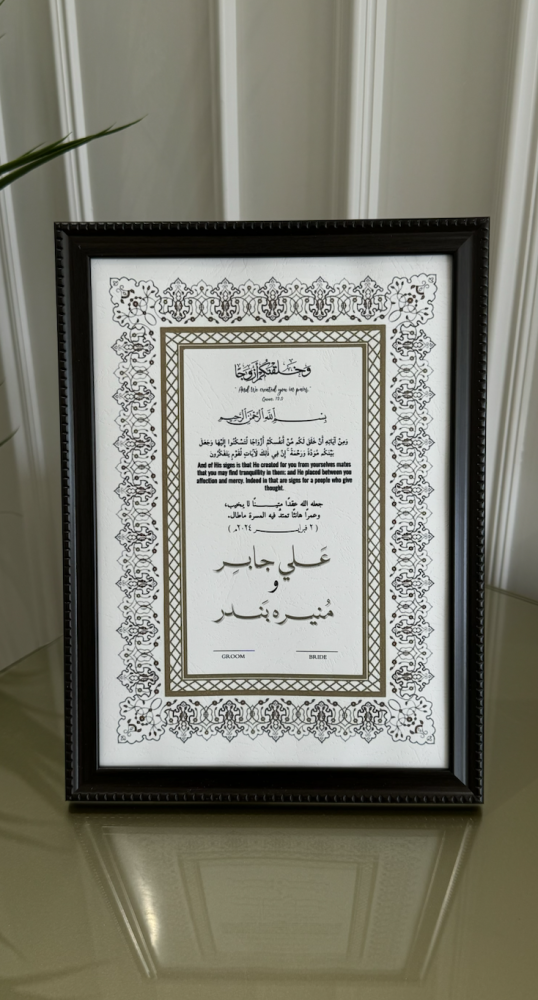 وَخَلَقْنَكُمْ أَزْوَاجًا
"And We created you in pairs"
بِسْمِ اللهِ الرَّحْمَنِ الرَّحِيمِ
وَمِنْ آيَاتِهِ أَنْ خَلَقَ لَكُم مِّنْ أَنفُسِكُمْ أَزْوَاجًا لِّتَسْكُنُوا إِلَيْهَا وَجَعَلَ
بَيْنَكُم مَّوَدَّةً وَرَحْمَةً ۚ إِنَّ فِي ذَٰلِكَ لَآيَاتٍ لِّقَوْمٍ يَتَفَكَّرُونَ
And of His signs is that He created for you from yourselves mates
that you may find tranquillity in them; and He placed between you
affection and mercy. Indeed in that are signs for a people who give
thought.
جعله الله عقدًا متينـــــًا لا يخيب،
وعمرًا هانئًا تمتدّ فيه المسرة ماطال.
( ٢ فبرايـــر ٢٠٢٤مـ )
عَلي جابِر
و
مُنيره بَندر
GROOM BRIDE